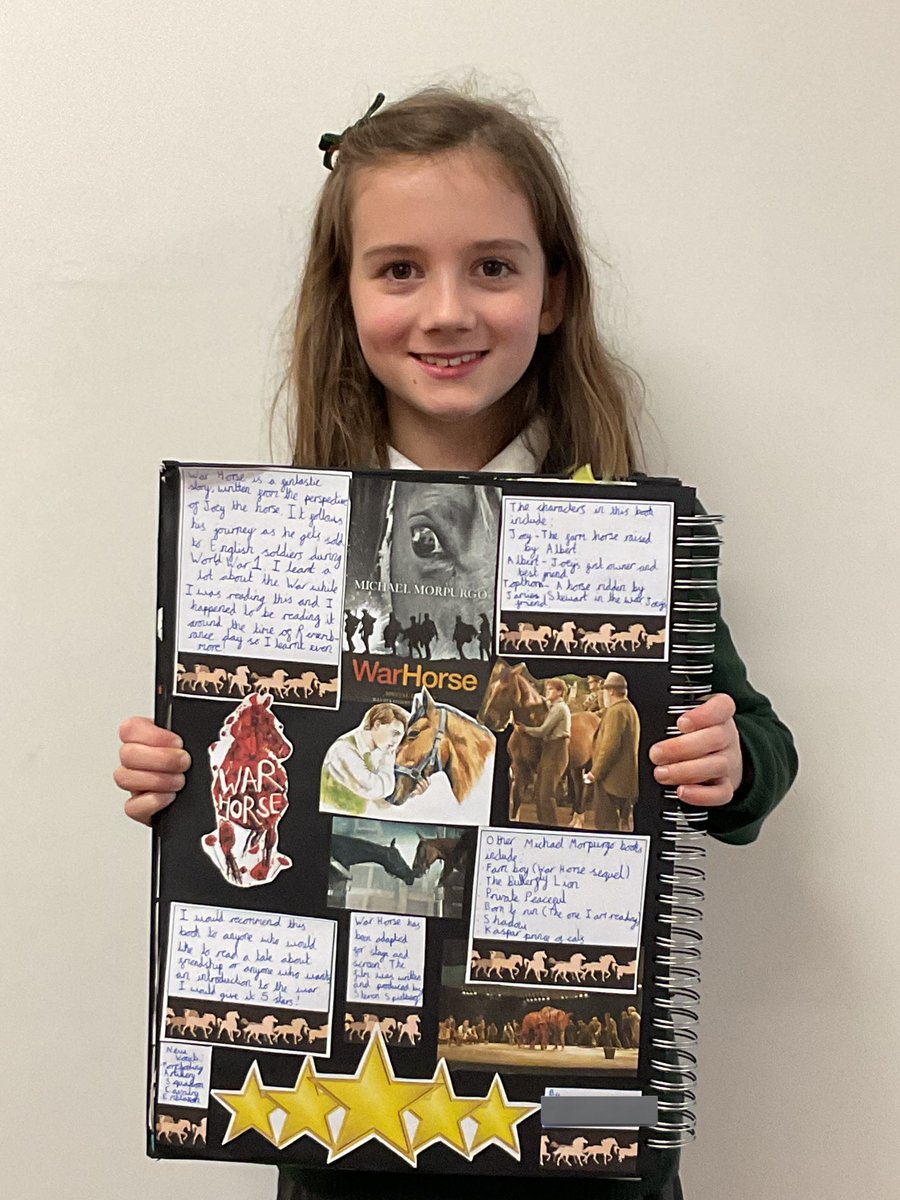 War Horse is a fantastic
story, written from the perspective
of Joey the horse. It follows
his journey as he gets sold
to English soldiers during
World War 1. I learnt a
lot about the War while
I was reading this and I
happened to be reading it
around the time of Rememb-
rance day so I learnt even
more
MICHAEL MORPURGO
WarHorse
The characters in this book
include:
Joey - The farm horse raised
by Albert
Albert - Joeys first owner and
best friend
Topthorn - A horse ridden by
Jamies Stewart in the War Joeys
friend
WAR
HORSE
Other Michael Morpurgo books
include:
Farm boy (War Horse sequel)
The Butterfly Lion
Private Peaceful
Born to run (The one I am reading)
Shadow
Kaspar prince of cats
I would recommend this
book to anyone who would
like to read a tale about
friendship or anyone who wants
an introduction to the war
I would give it 5 stars!
War Horse has
been adapted
for stage and
screen. The
film was written
and produced by
Steven Spielberg
New
Vocab
Artillery
Squadron
Cavalry
By